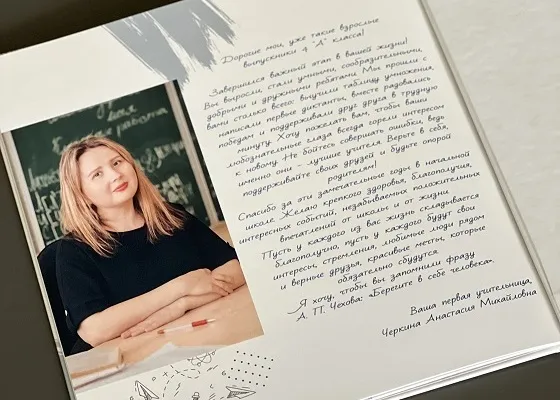 Дорогие мои, уже такие взрослые
выпускники 4 "Д" класса!
Завершился важный этап в вашей жизни!
Вы выросли, стали умными, сообразительными,
добрыми и дружными ребятами. Мы прошли с
вами столько всего: выучили таблицу умножения,
написали первые диктанты, вместе радовались
победам и поддерживали друг друга в трудную
минуту. Хочу пожелать вам, чтобы ваши
любознательные глаза всегда горели интересом
к новому. Не бойтесь совершать ошибки, ведь
именно они - лучшие учителя. Верьте в себя,
поддерживайте своих друзей и будьте опорой
родителям!
Спасибо за эти замечательные годы в начальной
школе. Желаю крепкого здоровья, благополучия,
интересных событий, незабываемых положительных
впечатлений от школы и от жизни.
Пусть у каждого из вас жизнь складывается
благополучно, пусть у каждого будут свои
интересы, стремления, любимые люди рядом
и верные друзья, красивые мечты, которые
обязательно сбудутся.
Я хочу, чтобы вы запомнили фразу
А. П. Чехова: «Берегите в себе человека».
Ваша первая учительница,
Черкина Анастасия Михайловна
работа